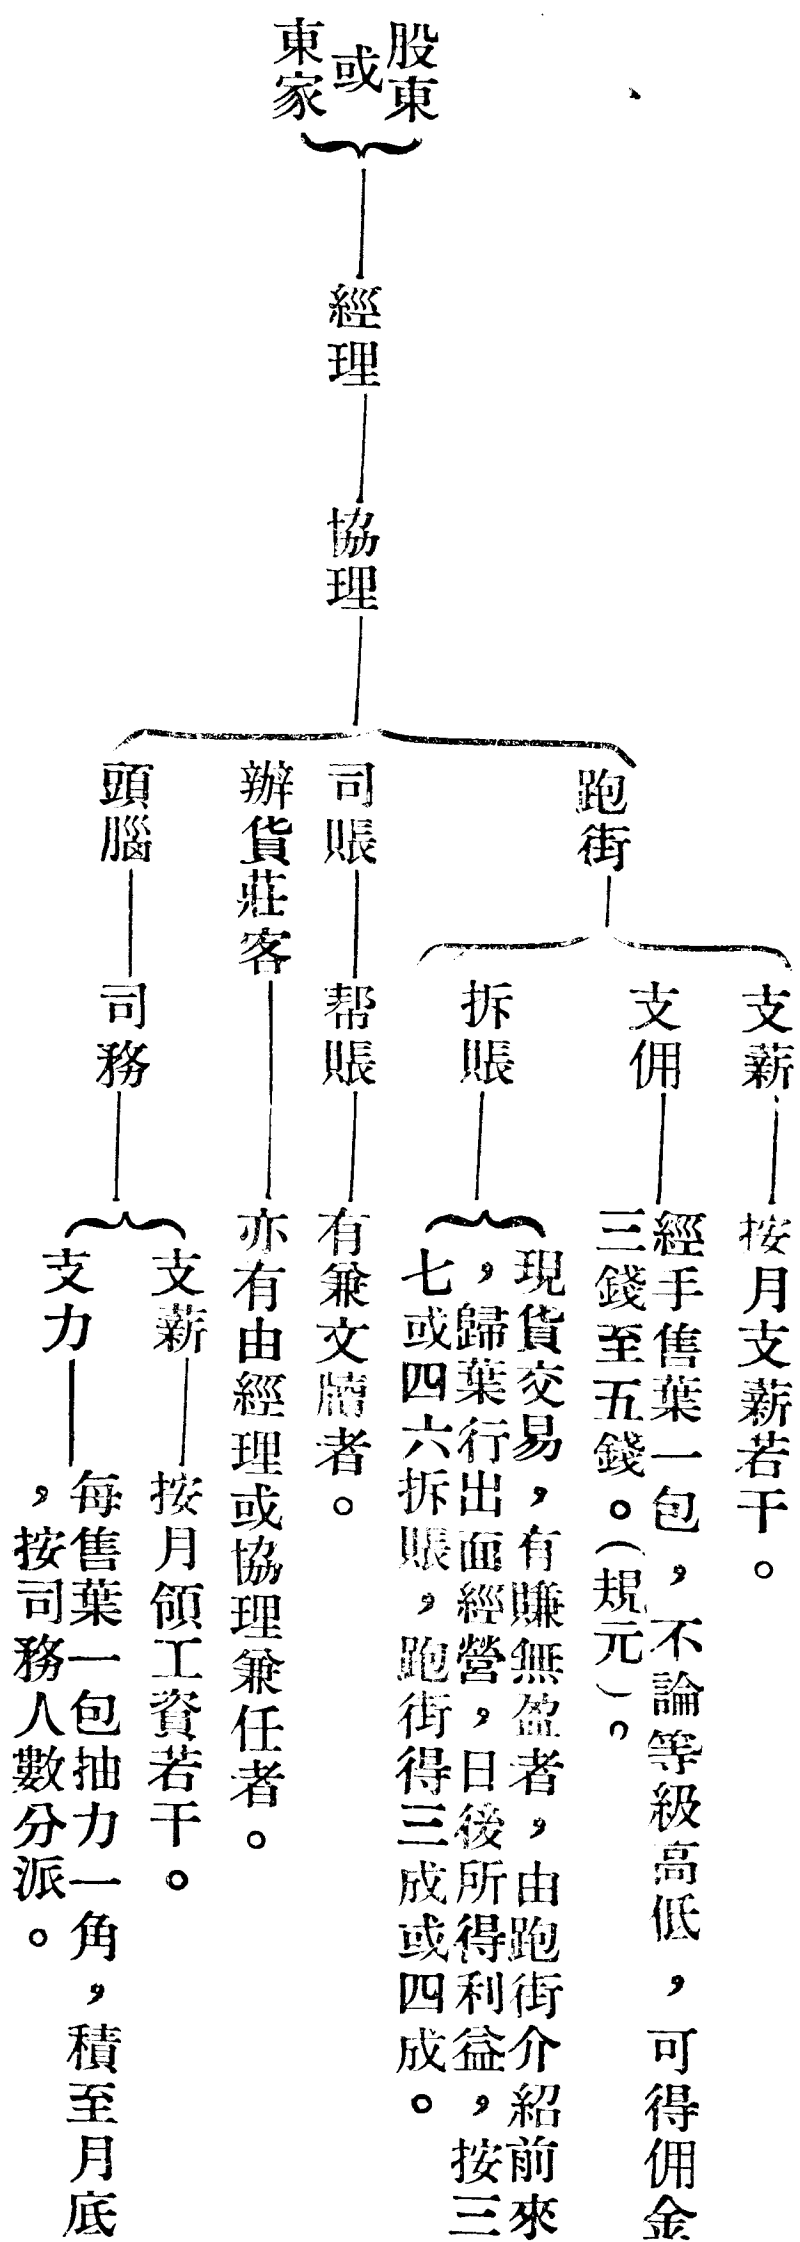 股東
或
東家
經理
協理
跑街
支薪
按月支薪若干。
支佣
經手售葉一包，不論等級高低，可得佣金
三錢至五錢。（規元）。
拆賬
現貨交易，有賺無盈者，由跑街介紹前來
，歸葉行出面經營，日後所得利益，按三
七或四六拆賬，跑街得三成或四成。
司賬
帮賬
有兼文牘者。
辦貨莊客
亦有由經理或協理兼任者。
頭腦
司務
支薪
按月領工資若干。
支力
每售葉一包抽力一角，積至月底
，按司務人數分派。